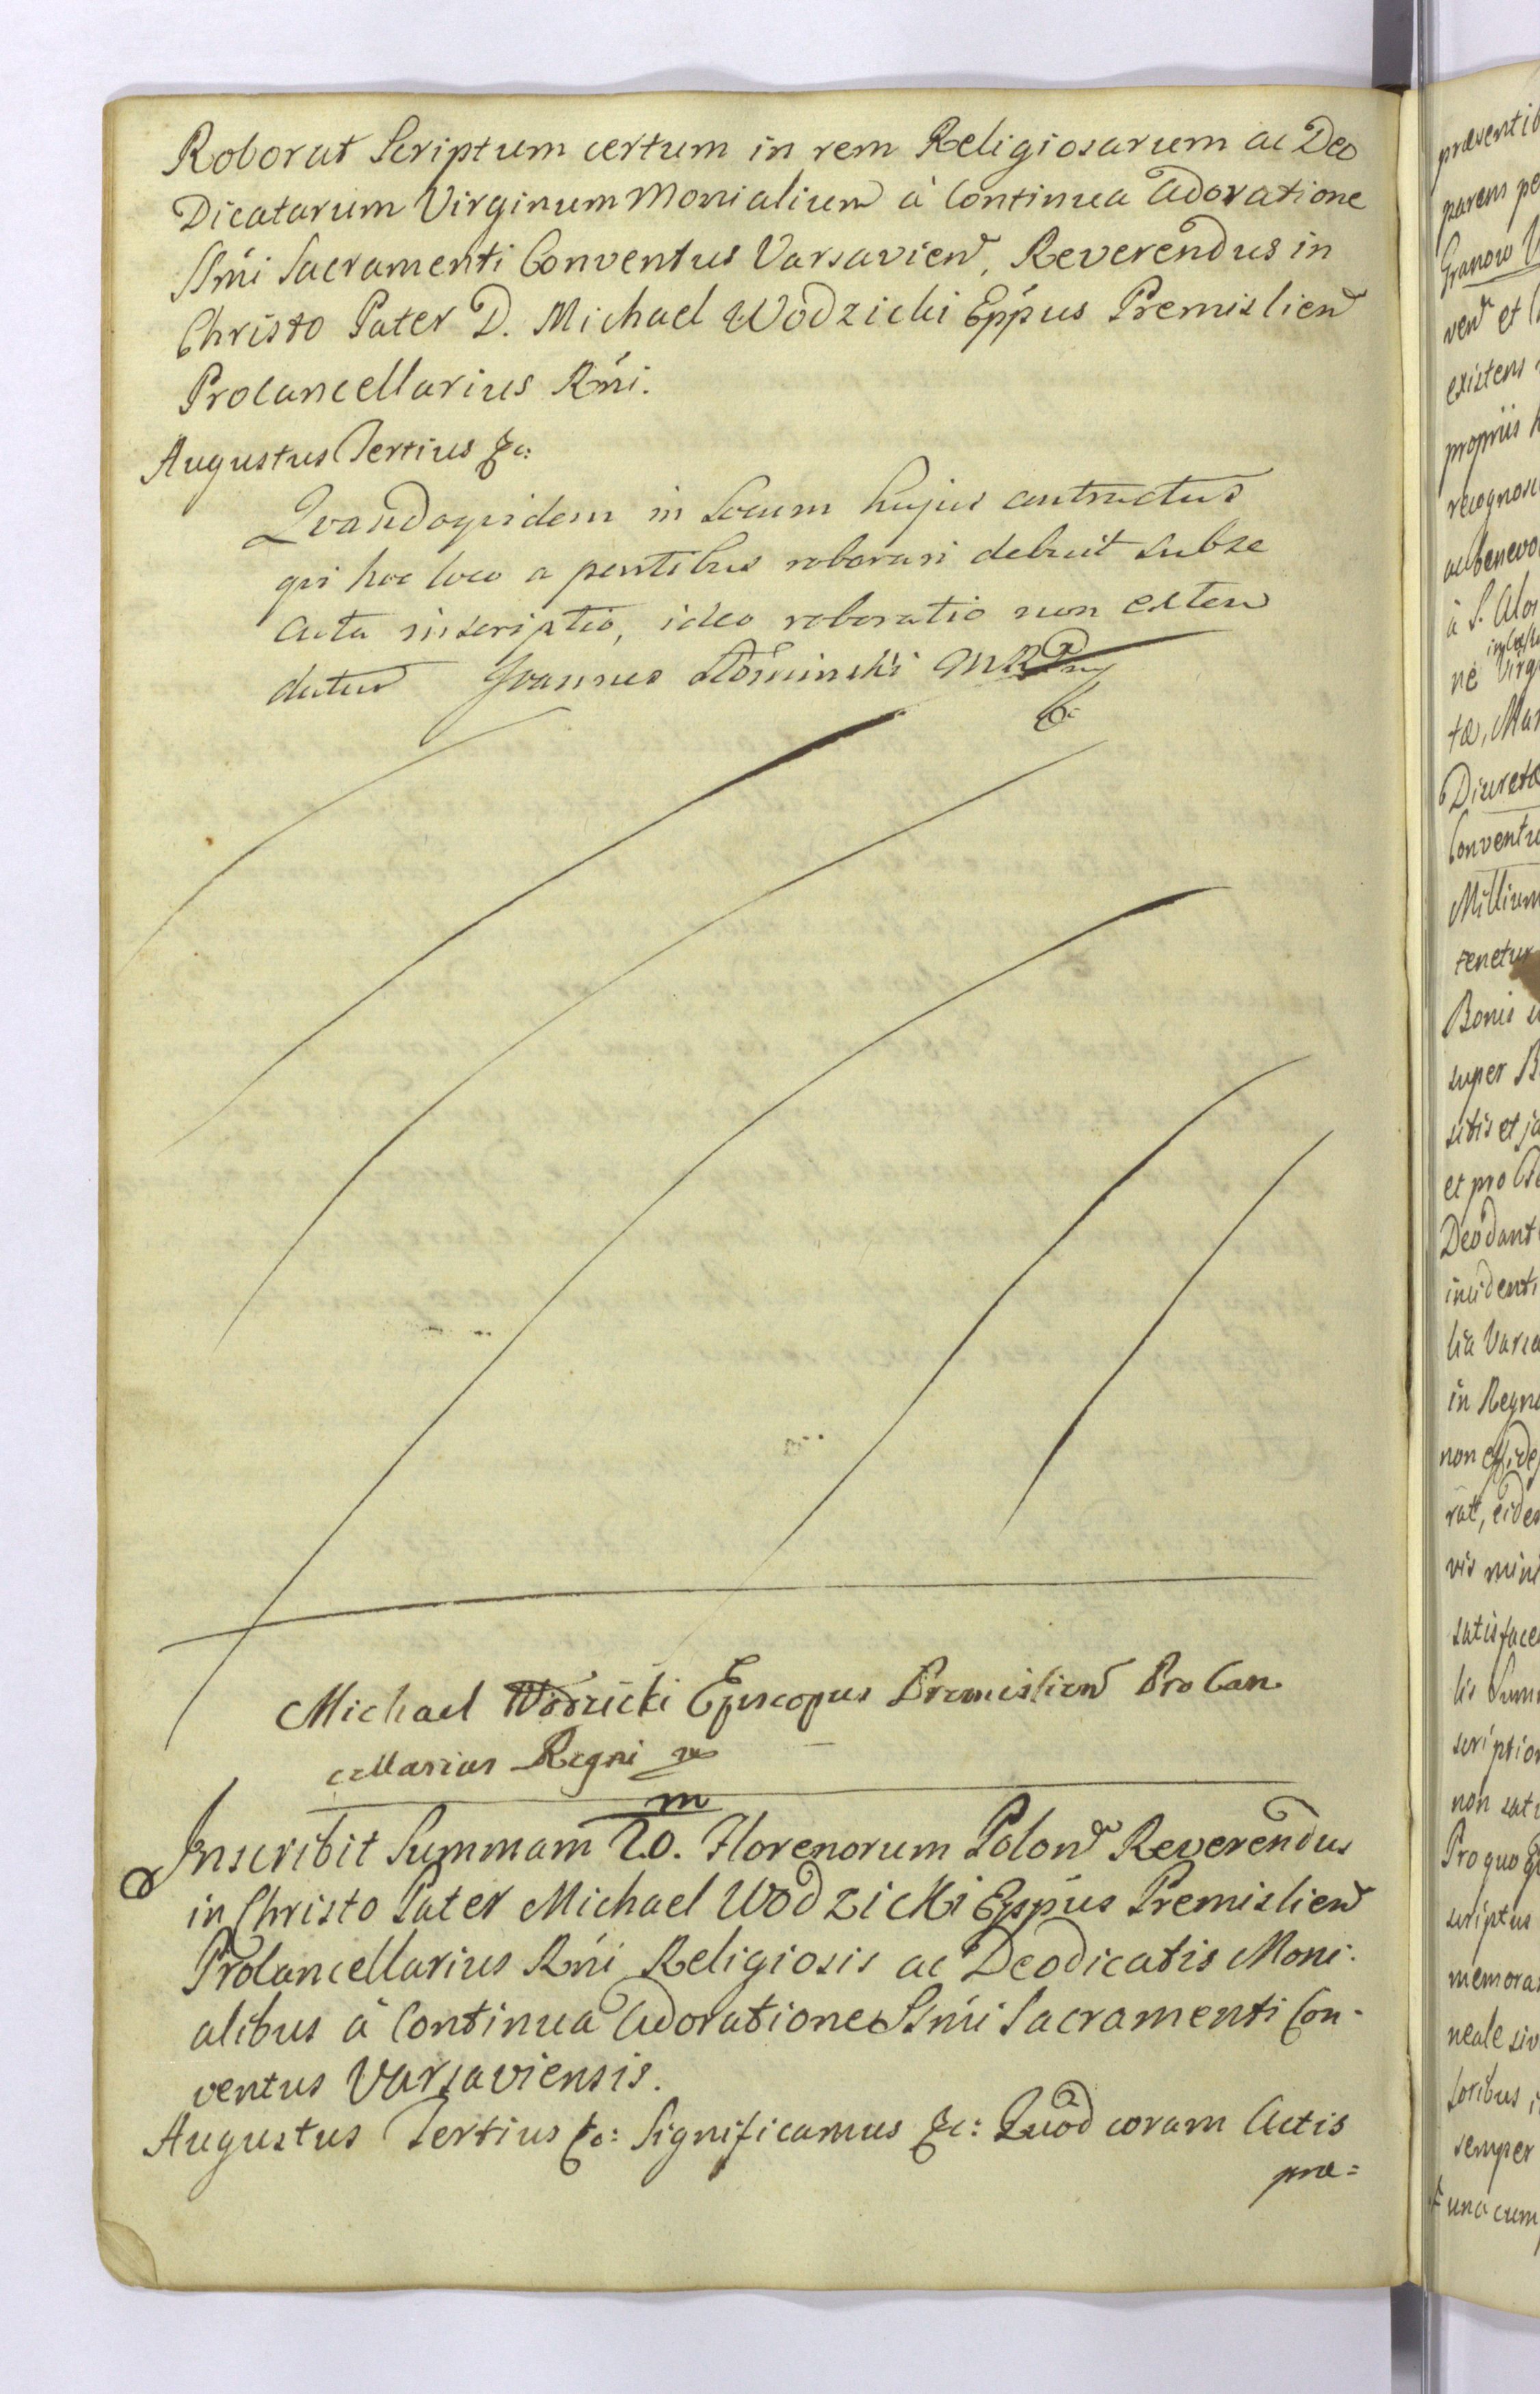 Roborat Scriptum certum in rem Religiosarum ac Deo
Dicatarum Virginum Monialium à Continua Adoratione
SSmi Sacramenti Conventus Varsavien, Reverendus in
Christo Pater D. Michael Wodzicki Eppus Premislien
Procancellarius Rni.
Augustus Tertius &c:
Quandoquidem in locum hujus contractus
qui hoc loco a partibus roborari debuit subse
cuta inscriptio, ideo roboratio non exten
datur Joannes
Michael Wodzicki Episcopus Premislien Pro Can
cellarius Regni
m
Inscribit Summam 20. Florenorum Polon Reverendus
in Christo Pater Michael Wodzicki Eppus Premislien
Procancellarius Rni Religiosis ac Deodicatis Moni-
alibus à Continua Adoratione SSmi Sacramenti Con-
ventus Varsaviensis.
Augustus Tertius &c: Significamus &c: Quod coram Actis
præ=
præsenti
parens pe
Granow V
ven et
existens
propriis
recognos
ac benevo
à S. Alo
ne Virg
tæ, Mar
Discreta
Conventu
Millium
tenetur
Bonis
super B
sitis et ja
et pro
Deodant
incidenti
lia Varsa
in Regn
non
ratt, eide
vis mini
satisface
lis Summ
scription
non sati
Pro quo
scriptus
memora
neale siv
soribus i
semper
una cum